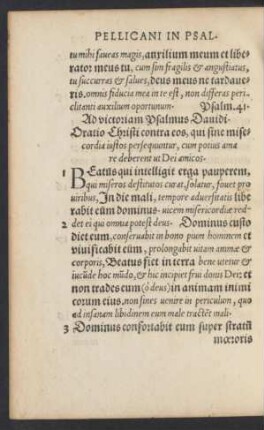 PELLICANI IN PSAL-
tu mihi faueas magis, auxilium meum et libe-
rator meus tu, cum sim fragilis & angustiatus,
tu succurras & salues, deus meus ne tardaue-
ris. omnis fiducia mea in te est, non differas peri-
clitanti auxilium oportunum. Psalm. 41.
Ad victoriam Psalmus Dauidi.
Oratio Christi contra eos, qui sine mise-
cordia iustos persequuntur, cum potius ama
re deberent ut Dei amicos.
1 BEatus qui intelligit erga pauperem,
qui miseros destitutos curat, solatur, fouet pro
uiribus, In die mali, tempore aduersitatis libe
rabit eum dominus. uicem misericordiæ red-
2 det ei qui omnia potest deus. Dominus custo
diet eum, conseruabit in bono pium hominem et
viuificabit eum, prolongabit uitam animæ &
corporis, Beatus fiet in terra bene utetur &
iucūde hoc mūdo, & hic incipiet frui donis Dei: et
non trades eum (ô deus) in animam inimi
corum eius, non sines uenire in periculum, quo
ad insanam libidinem eum male tractēt mali.
3 Dominus confortabit eum super stratū
mœroris